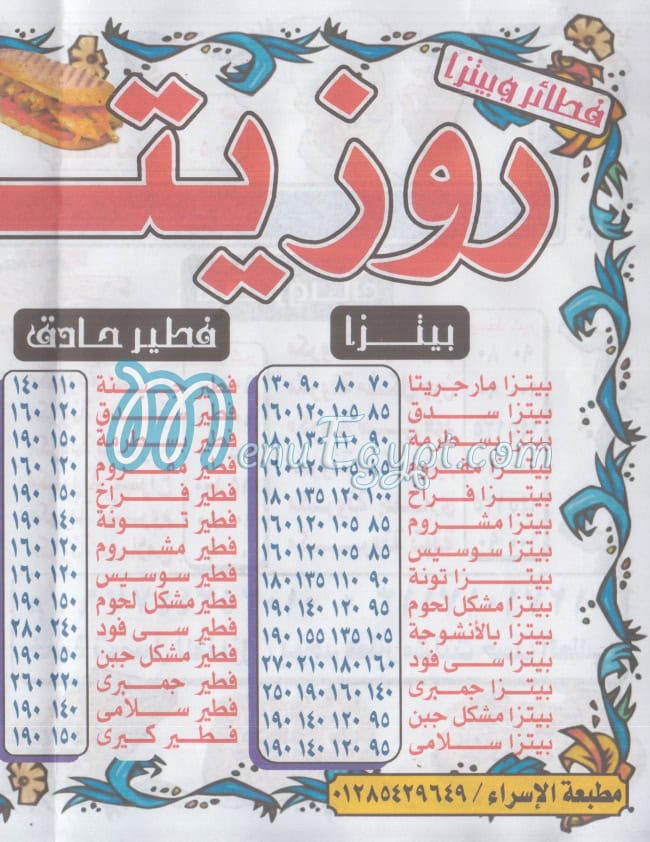 فطائر وبيتزا
روزيتـ
بيتزا
بيتزا مارجريتا ٧٠ ٨٠ ٩٠ ١٣٠
بيتزا سدق ٨٥ ١٠٥ ١٢٠ ١٦٠
بيتزا بسطرمة ٩٠ ١١٠
بيتزا
بيتزا فراخ ١٠٠ ١٢٠ ١٣٥ ١٨٠
بيتزا مشروم ٨٥ ١٠٥ ١٢٠ ١٦٠
بيتزا سوسيس ٨٥ ١٠٥ ١٢٠ ١٦٠
بيتزا تونة ٩٠ ١١٠ ١٣٥ ١٨٠
بيتزا مشكل لحوم ٩٥ ١٢٠ ١٤٠ ١٩٠
بيتزا بالأنشوجة ١٠٥ ١٣٥ ١٥٥ ١٩٠
بيتزا سى فود ١٦٠ ١٨٠ ٢١٠ ٢٧٠
بيتزا جمبرى ١٤٠ ١٦٠ ١٩٠ ٢٥٠
بيتزا مشكل جبن ٩٥ ١٢٠ ١٤٠ ١٩٠
بيتزا سلامى ٩٥ ١٢٠ ١٤٠ ١٩٠
فطير حادق
فطير ١١٠ ١٤٠
فطير ١٢٠ ١٦٠
فطير بسطرمة ١٥٠ ١٩٠
فطير مفروم ١٢٠ ١٦٠
فطير فراخ ١٥٠ ١٩٠
فطير تونة ١٤٠ ١٩٠
فطير مشروم ١٢٠ ١٦٠
فطير سوسيس ١٢٠ ١٦٠
فطير مشكل لحوم ١٥٠ ١٩٠
فطير سى فود ٢٤٠ ٢٨٠
فطير مشكل جبن ١٥٠ ١٩٠
فطير جمبرى ٢٢٠ ٢٦٠
فطير سلامى ١٤٠ ١٩٠
فطير كيرى ١٥٠ ١٩٠
MenuEgypt.com
مطبعة الإسراء / ٠١٢٨٥٤٢٩٦٤٩